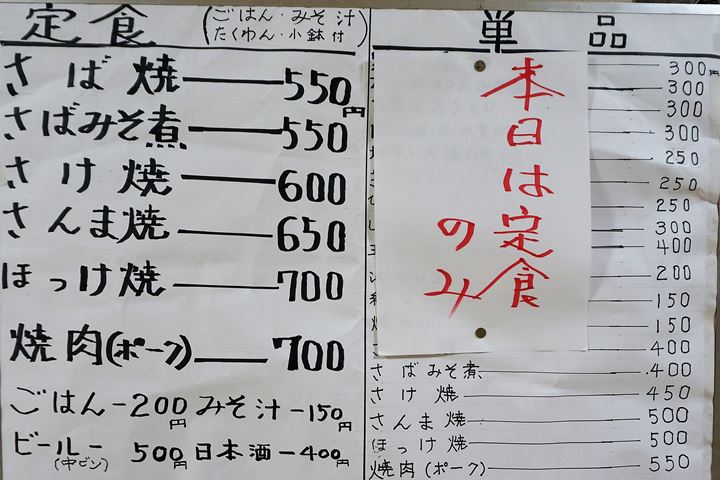 定食
(ごはん・みそ汁
たくわん・小鉢付)
さば焼 550円
さばみそ煮 550
さけ焼 600
さんま焼 650
ほっけ焼 700
焼肉(ポーク) 700
ごはん-200円 みそ汁-150円
ビールー 500円 日本酒-400円
(中ビン)
単品
本日は定食
のみ
300円
300
300
300
250
250
250
300
400
200
150
150
400
さばみそ煮 400
さけ焼 450
さんま焼 500
ほっけ焼 500
焼肉(ポーク) 550